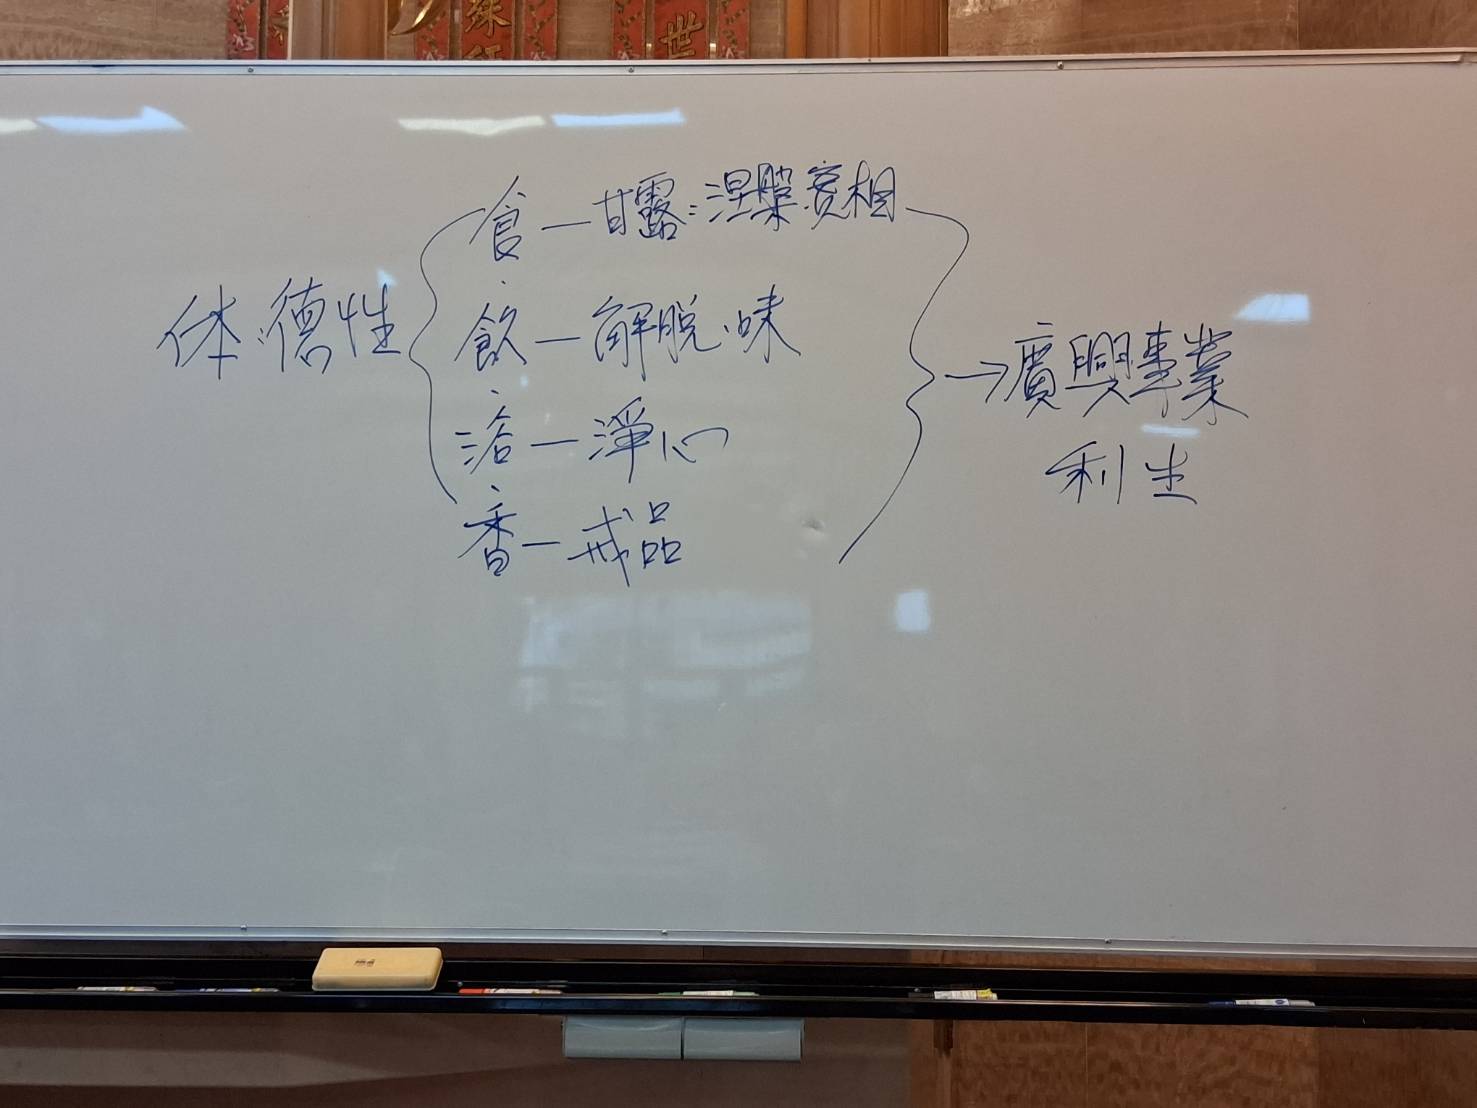 世
体：德性
食—甘露：涅槃實相
飲—解脫．味
浴—淨心
香—戒品
→廣興事業
利生